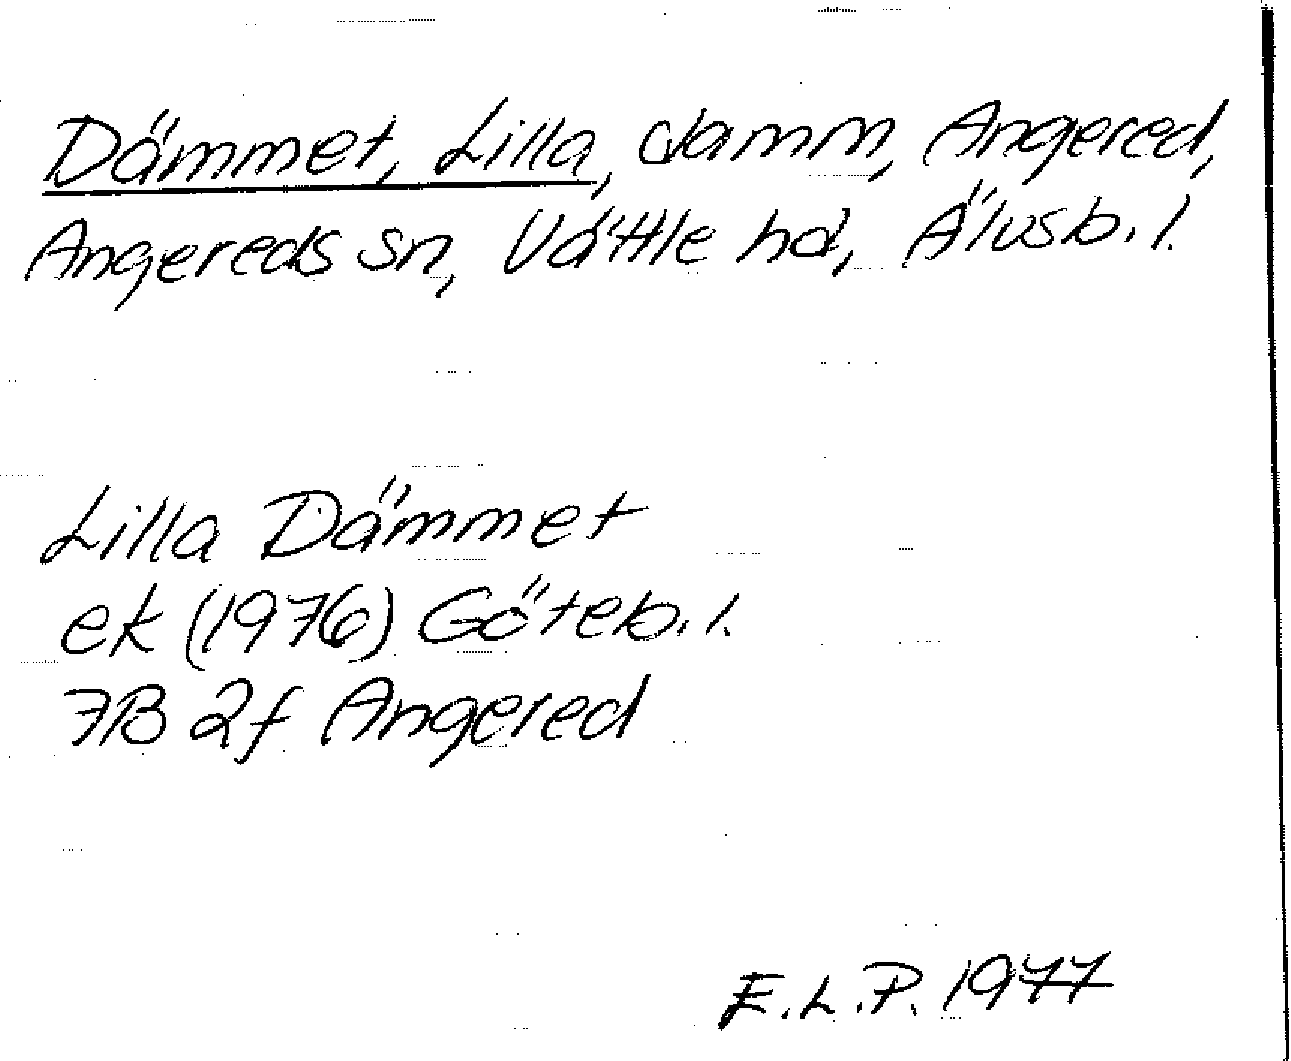 Dämmet, Lilla, damm, Angered,
Angereds sn, Vättle hd, Älvsb. l.
Lilla Dämmet
ek (1976) Göteb. l.
7B 2f Angered
E.L.P. 1977